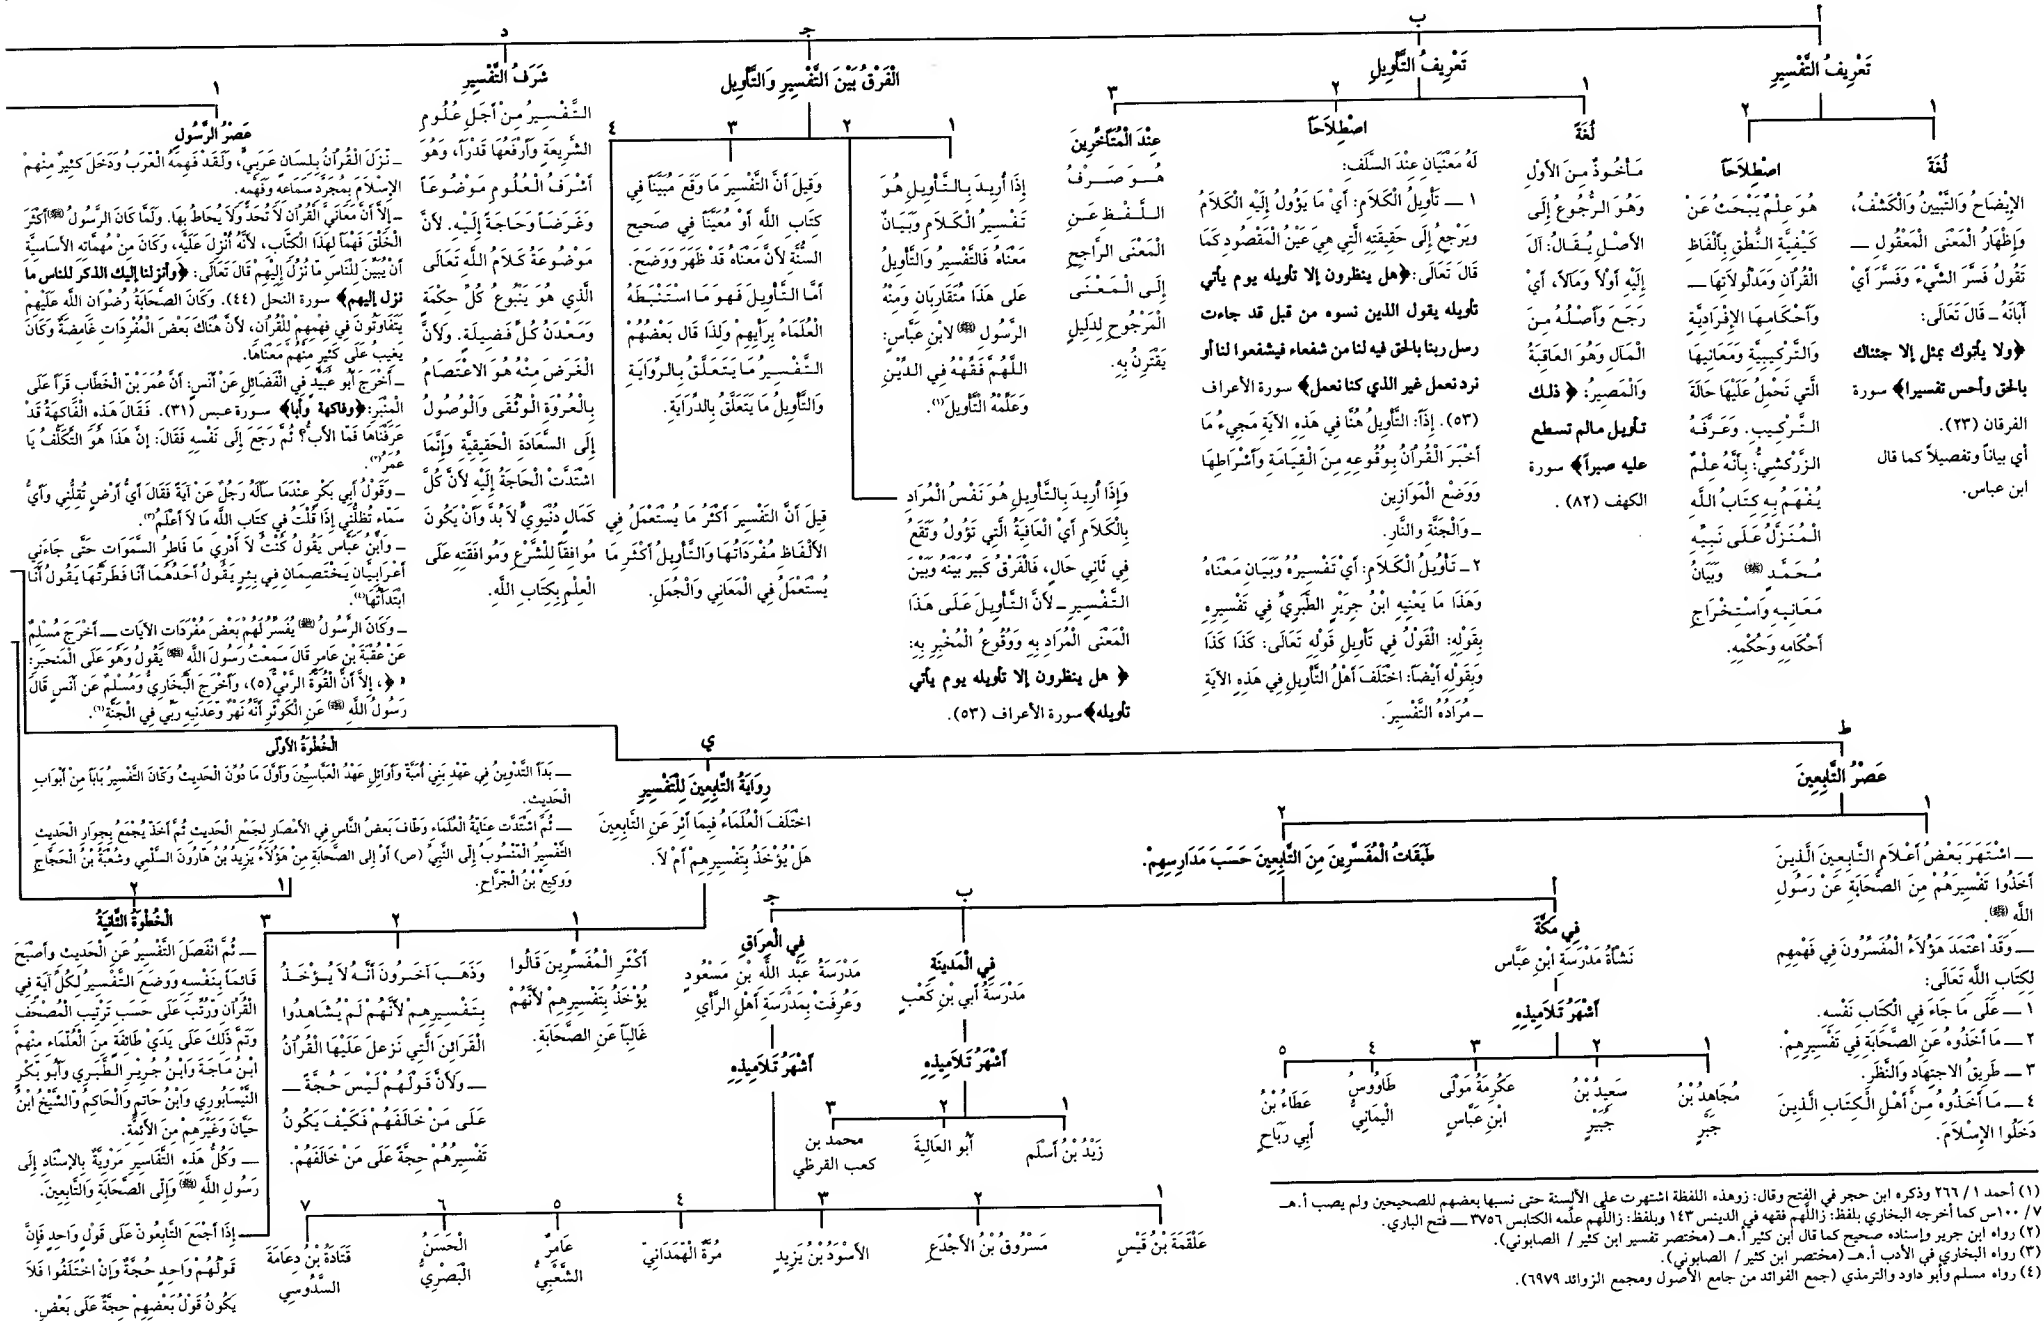 أ
تَعْرِيفُ التَّفْسِيرِ
١
لُغَةً
الإِيْضَاحُ وَالتَّبْيِينُ وَالْكَشْفُ،
وَإِظْهَارُ الْمَعْنَى الْمَعْقُولِ ــ
تَقُولُ فَسَّرَ الشَّيْءَ وَفَسَّرَ أَيْ
أَبَانَهُ ــ قَالَ تَعَالَى:
﴿ولا يأتوك بمثل إلا جئناك
بالحق وأحسن تفسيرا﴾ سورة
الفرقان (٢٣).
أي بياناً وتفصيلاً كما قال
ابن عباس.
٢
اصْطِلَاحَاً
هُوَ عِلْمٌ يَبْحَثُ عَنْ
كَيْفِيَّةِ النُّطْقِ بِأَلْفَاظِ
الْقُرْآنِ وَمَدْلُولَاتِهَا ــ
وَأَحْكَامِهَا الإِفْرَادِيَّةِ
وَالتَّرْكِيبِيَّةِ وَمَعَانِيهَا
الَّتِي تَحْمِلُ عَلَيْهَا حَالَةَ
التَّرْكِيبِ. وَعَرَّفَهُ
الزَّرْكَشِيُّ: بِأَنَّهُ عِلْمٌ
يُفْهَمُ بِهِ كِتَابُ اللَّهِ
الْمُنَزَّلُ عَلَى نَبِيِّهِ
مُحَمَّدٍ ﷺ وَبَيَانُ
مَعَانِيهِ وَاسْتِخْرَاجِ
أَحْكَامِهِ وَحُكْمِهِ.
ب
تَعْرِيفُ التَّأْوِيلِ
١
لُغَةً
مَأْخُوذٌ مِنَ الأَوْلِ
وَهُوَ الرُّجُوعُ إِلَى
الأَصْلِ يُقَالُ: آلَ
إِلَيْهِ أَوْلاً وَمَآلاً، أَيْ
رَجَعَ وَأَصْلُهُ مِنَ
الْمَآلِ وَهُوَ الْعَاقِبَةُ
وَالْمَصِيرُ: ﴿ذلك
تأويل مالم تسطع
عليه صبراً﴾ سورة
الكهف (٨٢).
٢
اصْطِلَاحَاً
لَهُ مَعْنَيَانِ عِنْدَ السَّلَفِ:
١ ــ تَأْوِيلُ الْكَلَامِ: أَيْ مَا يَؤُولُ إِلَيْهِ الْكَلَامُ
وَيَرْجِعُ إِلَى حَقِيقَتِهِ الَّتِي هِيَ عَيْنُ الْمَقْصُودِ كَمَا
قَالَ تَعَالَى: ﴿هل ينظرون إلا تأويله يوم يأتي
تأويله يقول الذين نسوه من قبل قد جاءت
رسل ربنا بالحق فيه لنا من شفعاء فيشفعوا لنا أو
نرد نعمل غير الذي كنا نعمل﴾ سورة الأعراف
(٥٣). إِذَاً: التَّأْوِيلُ هُنَا فِي هَذِهِ الآيَةِ مَجِيءُ مَا
أَخْبَرَ الْقُرْآنُ بِوُقُوعِهِ مِنَ الْقِيَامَةِ وَأَشْرَاطِهَا
وَوَضْعِ الْمَوَازِينِ
ــ وَالْجَنَّةِ وَالنَّارِ.
٢ ــ تَأْوِيلُ الْكَلَامِ: أَيْ تَفْسِيرُهُ وَبَيَانِ مَعْنَاهُ
وَهَذَا مَا يَعْنِيهِ ابْنُ جَرِيْرٍ الطَّبَرِيِّ فِي تَفْسِيرِهِ
بِقَوْلِهِ: الْقَوْلُ فِي تَأْوِيلِ قَوْلِهِ تَعَالَى: كَذَا كَذَا
وَبِقَوْلِهِ أَيْضَاً: اخْتَلَفَ أَهْلُ التَّأْوِيلِ فِي هَذِهِ الآيَةِ
ــ مُرَادُهُ التَّفْسِيرَ.
٣
عِنْدَ الْمُتَأَخِّرِينَ
هُـوَ صَـرْفُ
اللَّفْظِ عَنِ
الْمَعْنَى الرَّاجِحِ
إِلَى الْمَعْنَى
الْمَرْجُوحِ لِدَلِيلٍ
يَقْتَرِنُ بِهِ.
جـ
الْفَرْقُ بَيْنَ التَّفْسِيرِ وَالتَّأْوِيلِ
١
إِذَا أُرِيدَ بِالتَّأْوِيلِ هُوَ
تَفْسِيرُ الْكَلَامِ وَبَيَانُ
مَعْنَاهُ فَالتَّفْسِيرُ وَالتَّأْوِيلُ
عَلَى هَذَا مُتَقَارِبَانِ وَمِنْهُ
الرَّسُولِ ﷺ لابْنِ عَبَّاسٍ:
اللَّهُمَّ فَقِّهْهُ فِي الدِّيْنِ
وَعَلِّمْهُ التَّأْوِيلَ(١).
٢
وَإِذَا أُرِيدَ بِالتَّأْوِيلِ هُوَ نَفْسُ الْمُرَادِ
بِالْكَلَامِ أَيْ الْعَاقِبَةُ الَّتِي تَؤُولُ وَتَقَعُ
فِي ثَانِي حَالٍ، فَالْفَرْقُ كَبِيرٌ بَيْنَهُ وَبَيْنَ
التَّفْسِيرِ ــ لأَنَّ التَّأْوِيلَ عَلَى هَذَا
الْمَعْنَى الْمُرَادِ بِهِ وَوُقُوعُ الْمُخْبِرِ بِهِ:
﴿هل ينظرون إلا تأويله يوم يأتي
تأويله﴾ سورة الأعراف (٥٣).
٣
وَقِيلَ أَنَّ التَّفْسِيرَ مَا وَقَعَ مُبَيَّناً فِي
كِتَابِ اللَّهِ أَوْ مُعَيَّناً فِي صَحِيحِ
السُّنَّةِ لأَنَّ مَعْنَاهُ قَدْ ظَهَرَ وَوَضَحَ.
أَمَّا التَّأْوِيلَ فَهُوَ مَا اسْتَنْبَطَهُ
الْعُلَمَاءُ بِرَأْيِهِمْ وَلِذَا قَالَ بَعْضُهُمْ
التَّفْسِيرُ مَا يَتَعَلَّقُ بِالرِّوَايَةِ
وَالتَّأْوِيلُ مَا يَتَعَلَّقُ بِالدِّرَايَةِ.
٤
قِيلَ أَنَّ التَّفْسِيرَ أَكْثَرُ مَا يُسْتَعْمَلُ فِي
الأَلْفَاظِ مُفْرَدَاتُهَا وَالتَّأْوِيلُ أَكْثَرِ مَا
يُسْتَعْمَلُ فِي الْمَعَانِي وَالْجُمَلِ.
د
شَرَفُ التَّفْسِيرِ
التَّفْسِيرُ مِنْ أَجَلِ عُلُومِ
الشَّرِيعَةِ وَأَرْفَعُهَا قَدْرَاً، وَهُوَ
أَشْرَفُ الْعُلُومِ مَوْضُوعَاً
وَغَرَضَاً وَحَاجَةً إِلَيْهِ. لأَنَّ
مَوْضُوعَهُ كَلَامُ اللَّهِ تَعَالَى
الَّذِي هُوَ يَنْبُوعُ كُلِّ حِكْمَةٍ
وَمَعْدَنُ كُلِّ فَضِيلَةٍ. وَلأَنَّ
الْغَرَضَ مِنْهُ هُوَ الاعْتِصَامُ
بِالْعُرْوَةِ الْوُثْقَى وَالْوُصُولُ
إِلَى السَّعَادَةِ الْحَقِيقِيَّةِ وَإِنَّمَا
اشْتَدَّتْ الْحَاجَةُ إِلَيْهِ لأَنَّ كُلَّ
كَمَالٍ دُنْيَوِيٍّ لاَ بُدَّ وَأَنْ يَكُونَ
مُوافِقاً لِلشَّرْعِ وَمُوافَقَتِهِ عَلَى
الْعِلْمِ بِكِتَابِ اللَّهِ.
١
عَصْرُ الرَّسُولِ
ــ نَزَلَ الْقُرْآنُ بِلِسَانٍ عَرَبِيٍّ، وَلَقَدْ فَهِمَهُ الْعَرَبُ وَدَخَلَ كَثِيرٌ مِنْهِمْ
الإِسْلَامَ بِمُجَرَّدِ سَمَاعِهِ وَفَهْمِهِ.
ــ إِلاَّ أَنَّ مَعَانِيَ الْقُرْآنِ لاَ تُحَدُّ وَلاَ يُحَاطُ بِهَا. وَلَمَّا كَانَ الرَّسُولُ ﷺ أَكْثَرَ
الْخَلْقِ فَهْمَاً لِهَذَا الْكِتَابِ، لأَنَّهُ أُنْزِلَ عَلَيْهِ، وَكَانَ مِنْ مُهِمَّاتِهِ الأَسَاسِيَّةِ
أَنْ يُبَيِّنَ لِلنَّاسِ مَا نُزِّلَ إِلَيْهِمْ قَالَ تَعَالَى: ﴿وأنزلنا إليك الذكر للناس ما
نزل إليهم﴾ سورة النحل (٤٤). وَكَانَ الصَّحَابَةُ رِضْوَانِ اللَّهِ عَلَيْهِمْ
يَتَفَاوَتُونَ فِي فَهْمِهِمْ لِلْقُرْآنِ، لأَنَّ هُنَاكَ بَعْضَ الْمُفْرَدَاتِ غَامِضَةً وَكَانَ
يَغِيبُ عَلَى كَثِيرٍ مِنْهُمْ مَعْنَاهَا.
ــ أَخْرَجَ أَبُو عُبَيْدٍ فِي الْفَضَائِلِ عَنْ أَنَسٍ: أَنَّ عُمَرَ بْنَ الْخَطَّابِ قَرَأَ عَلَى
الْمِنْبَرِ: ﴿وفاكهة وأبا﴾ سورة عبس (٣١). فَقَالَ هَذِهِ الْفَاكِهَةُ قَدْ
عَرَفْنَاهَا فَمَا الأَبُّ؟ ثُمَّ رَجَعَ إِلَى نَفْسِهِ فَقَالَ: إِنَّ هَذَا هُوَ التَّكَلُّفُ يَا
عُمَرُ(٢).
ــ وَقَوْلُ أَبِي بَكْرٍ عِنْدَمَا سَأَلَهُ رَجُلٌ عَنْ آيَةٍ فَقَالَ أَيُّ أَرْضٍ تُقِلُّنِي وَأَيُّ
سَمَاءٍ تُظِلُّنِي إِذَا قُلْتُ فِي كِتَابِ اللَّهِ مَا لاَ أَعْلَمُ(٣).
ــ وَابْنُ عَبَّاسٍ يَقُولُ كُنْتُ لاَ أَدْرِي مَا فَاطِرُ السَّمَوَاتِ حَتَّى جَاءَنِي
أَعْرَابِيَّانِ يَخْتَصِمَانِ فِي بِئْرٍ يَقُولُ أَحَدُهُمَا أَنَا فَطَرْتُهَا يَقُولُ أَنَا
ابْتَدَأْتُهَا(٤).
ــ وَكَانَ الرَّسُولُ ﷺ يُفَسِّرُ لَهُمْ بَعْضَ مُفْرَدَاتِ الآيَاتِ ــ أَخْرَجَ مُسْلِمٌ
عَنْ عُقْبَةَ بْنِ عَامِرٍ قَالَ سَمِعْتُ رَسُولَ اللَّهِ ﷺ يَقُولُ وَهُوَ عَلَى الْمَنْبَرِ:
﴿، إِلاَّ أَنَّ الْقُوَّةَ الرَّمْيُ(٥)، وَأَخْرَجَ الْبُخَارِيُّ وَمُسْلِمٌ عَنْ أَنَسٍ قَالَ
رَسُولُ اللَّهِ ﷺ عَنِ الْكَوْثَرِ أَنَّهُ نَهْرٌ وَعَدَنِيهِ رَبِّي فِي الْجَنَّةِ(٦).
ط
عَصْرُ التَّابِعِينَ
١
ــ اشْتَهَرَ بَعْضُ أَعْلَامِ التَّابِعِينَ الَّذِينَ
أَخَذُوا تَفْسِيرَهُمْ مِنَ الصَّحَابَةِ عَنْ رَسُولِ
اللَّهِ ﷺ.
ــ وَقَدْ اعْتَمَدَ هَؤُلَاءُ الْمُفَسِّرُونَ فِي فَهْمِهِمِ
لِكِتَابِ اللَّهِ تَعَالَى:
١ ــ عَلَى مَا جَاءَ فِي الْكِتَابِ نَفْسِهِ.
٢ ــ مَا أَخَذُوهُ عَنِ الصَّحَابَةِ فِي تَفْسِيرِهِمْ.
٣ ــ طَرِيقُ الاجتِهَادِ وَالنَّظَرِ.
٤ ــ مَا أَخَذُوهُ مِنْ أَهْلِ الْكِتَابِ الَّذِينَ
دَخَلُوا الإِسْلَامَ.
٢
طَبَقَاتُ الْمُفَسِّرِينَ مِنَ التَّابِعِينَ حَسَبَ مَدَارِسِهِمْ.
أ
فِي مَكَّةَ
نَشْأَةُ مَدْرَسَةِ ابْنِ عَبَّاسٍ
أَشْهَرُ تَلَامِيذِهِ
١
مُجَاهِدُ بْنُ
جَبْرٍ
٢
سَعِيدُ بْنُ
جُبَيْرٍ
٣
عِكْرِمَةُ مَوْلَى
ابْنِ عَبَّاسٍ
٤
طَاوُوسُ
الْيَمَانِيُّ
٥
عَطَاءُ بْنُ
أَبِي رَبَاحٍ
ب
فِي الْمَدِينَةِ
مَدْرَسَةُ أُبَيِّ بْنِ كَعْبٍ
أَشْهَرُ تَلَامِيذِهِ
١
زَيْدُ بْنُ أَسْلَمَ
٢
أَبُو العَالِيَةَ
٣
محمد بن
كعب القرظي
جـ
فِي الْعِرَاقِ
مَدْرَسَةُ عَبْدِ اللَّهِ بْنِ مَسْعُودٍ
وَعُرِفَتْ بِمَدْرَسَةِ أَهْلِ الرَّأْيِ
أَشْهَرُ تَلَامِيذِهِ
١
عَلْقَمَةَ بْنُ قَيْسٍ
٢
مَسْرُوقُ بْنُ الأَجْدَعِ
٣
الأَسْوَدُ بْنُ يَزِيدٍ
٤
مُرَّةُ الْهَمَدَانِيِّ
٥
عَامِرٌ
الشَّعْبِيُّ
٦
الْحَسَنُ
الْبَصْرِيُّ
٧
قَتَادَةُ بْنُ دِعَامَةَ
السَّدُوسِي
ي
رِوَايَةُ التَّابِعِينَ لِلْتَفْسِيرِ
اخْتَلَفَ الْعُلَمَاءُ فِيمَا أُثِرَ عَنِ التَّابِعِينَ
هَلْ يُؤْخَذُ بِتَفْسِيرِهِمْ أَمْ لاَ.
١
أَكْثَرِ الْمُفَسِّرِينَ قَالُوا
يُؤْخَذُ بِتَفْسِيرِهِمْ لأَنَّهُمْ
غَالِبَاً عَنِ الصَّحَابَةِ.
٢
وَذَهَبَ آخَرُونَ أَنَّهُ لاَ يُؤْخَذُ
بِتَفْسِيرِهِمْ لأَنَّهُمْ لَمْ يُشَاهِدُوا
الْقَرَائِنَ الَّتِي نَزلَ عَلَيْهَا الْقُرْآنُ
ــ وَلأَنَّ قَوْلَهُمْ لَيْسَ حُجَّةً ــ
عَلَى مَنْ خَالَفَهُمْ فَكَيْفَ يَكُونُ
تَفْسِيرُهُمْ حِجَّةً عَلَى مَنْ خَالَفَهُمْ.
٣
ــ إِذَا أَجْمَعَ التَّابِعُونَ عَلَى قَوْلٍ وَاحِدٍ فَإِنَّ
قَوْلَهُمْ وَاحِدٍ حُجَّةٌ وَإِنْ اخْتَلَفُوا فَلاَ
يَكُونُ قَوْلُ بَعْضِهِمْ حِجَّةً عَلَى بَعْضٍ.
الْخُطْوَةُ الأَوْلَى
ــ بَدَأَ التَّدْوِينُ فِي عَهْدِ بَنِي أُمَيَّةَ وَأَوَائِلِ عَهْدُ الْعَبَّاسِيِّينَ وَأَوَّلَ مَا دُوِّنَ الْحَدِيثُ وَكَانَ التَّفْسِيرُ بَابَاً مِنْ أَبْوَابِ
الْحَدِيثِ.
ــ ثُمَّ اشْتَدَّتْ عِنَايَةُ الْعُلَمَاءِ وَطَافَ بَعضُ النَّاسِ فِي الأَمْصَارِ لِجَمْعِ الْحَدِيثِ ثُمَّ أَخَذَ يُجْمَعُ بِجِوَارِ الْحَدِيثِ
التَّفْسِيرُ الْمَنْسُوبُ إِلَى النَّبِيِّ (ص) أَوْ إِلَى الصَّحَابَةِ مِنْ هَؤُلَاءُ يَزِيدُ بْنُ هَارُونَ السُّلَّمِي وَشُعْبَةُ بْنُ الْحَجَّاجِ
وَوَكِيعُ بْنُ الْجَرَّاحِ.
١
٢
الْخُطْوَةُ الثَّانِيَةُ
ــ ثُمَّ انْفَصَلَ التَّفْسِيرُ عَنِ الْحَدِيثِ وَأَصْبَحَ
قَائِمَاً بِنَفْسِهِ وَوَضَعَ التَّفْسِيرُ لِكُلِّ آيَةٍ فِي
الْقُرْآنِ وَرُتِّبَ عَلَى حَسَبِ تَرْتِيبِ الْمُصْحَفِ
وَتَمَّ ذَلِكَ عَلَى يَدَيْ طَائِفَةٍ مِنَ الْعُلَمَاءِ مِنْهُمْ
ابْنُ مَاجَةَ وَابْنُ جُرِيْرٍ الطَّبَرِي وَأَبُو بَكْرٍ
النَّيْسَابُورِي وَابْنُ حَاتِمٍ وَالْحَاكِمُ وَالشَّيْخُ ابْنُ
حَيَّانَ وَغَيْرَهِمْ مِنَ الأَئِمَّةِ.
ــ وَكُلُّ هَذِهِ التَّفَاسِيرِ مَرْوِيَّةٌ بِالإِسْنَادِ إِلَى
رَسُولِ اللَّهِ ﷺ وَإِلَى الصَّحَابَةِ وَالتَّابِعِينَ.
(١) أحمد ١/ ٢٦٦ وذكره ابن حجر في الفتح وقال: زوهذه اللفظة اشتهرت على الألسنة حتى نسبها بعضهم للصحيحين ولم يصب أ.هـ
٧/ ١٠٠س كما أخرجه البخاري بلفظ: زاللّهم فقهه في الدينس ١٤٣ وبلفظ: زاللّهم علّمه الكتابس ٣٧٥٦ ــ فتح الباري.
(٢) رواه ابن جرير وإسناده صحيح كما قال ابن كثير أ.هـ (مختصر تفسير ابن كثير / الصابوني).
(٣) رواه البخاري في الأدب أ.هـ (مختصر ابن كثير / الصابوني).
(٤) رواه مسلم وأبو داود والترمذي (جمع الفوائد من جامع الأصول ومجمع الزوائد ٦٩٧٩).